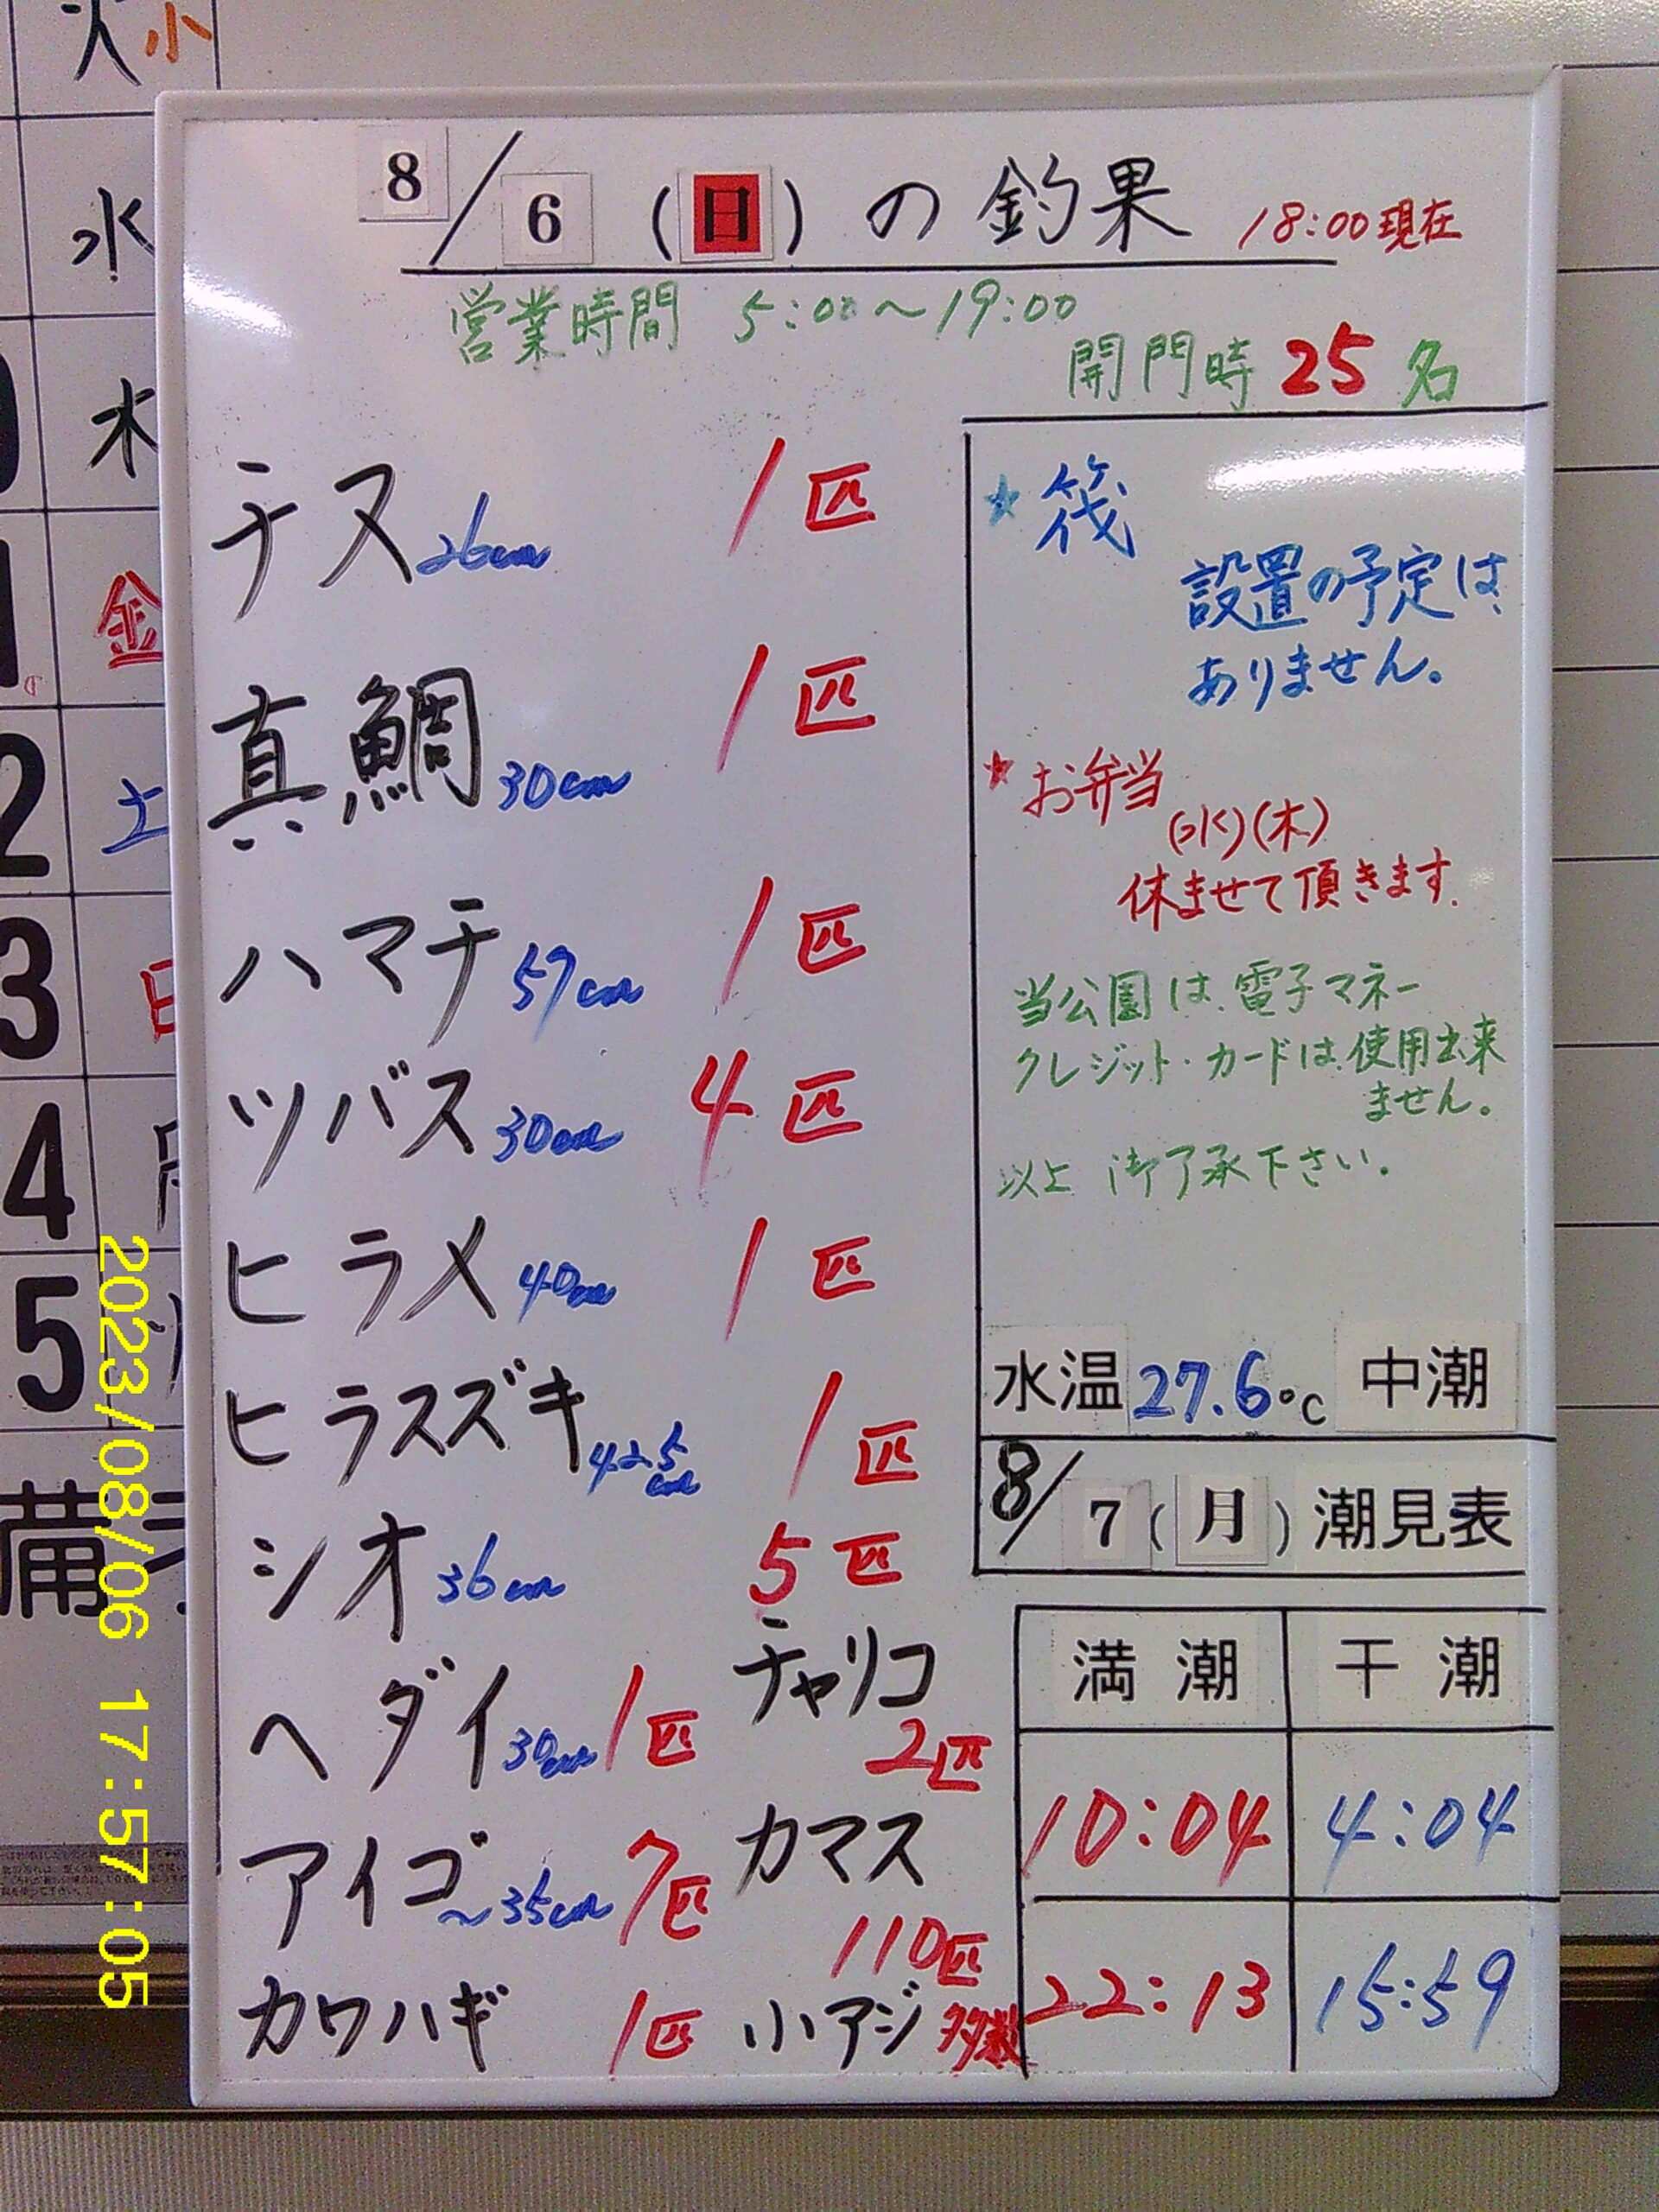 8/6(日)の釣果 18:00現在
営業時間 5:00〜19:00
開門時 25名
チヌ 26cm 1匹
真鯛 30cm 1匹
ハマチ 57cm 1匹
ツバス 30cm 4匹
ヒラメ 40cm 1匹
ヒラスズキ 42.5cm 1匹
シオ 36cm 5匹
ヘダイ 30cm 1匹
アイゴ 〜35cm 7匹
カワハギ 1匹
チャリコ
2匹
カマス
110匹
小アジ 多数
★筏
設置の予定は
ありません。
★お弁当
(水)(木)
休ませて頂きます.
当公園は、電子マネー
クレジット・カードは、使用出来
ません。
以上 御了承下さい。
水温 27.6℃ 中潮
8/7(月)潮見表
満潮 干潮
10:04 4:04
22:13 15:59
火 小
水
木
金
2 土
3 日
4
5
備
2023/08/06 17:57:05